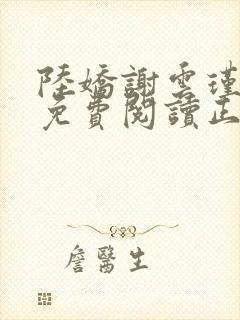 陸嬌謝雲瑾
免費閱讀正
詹醫生